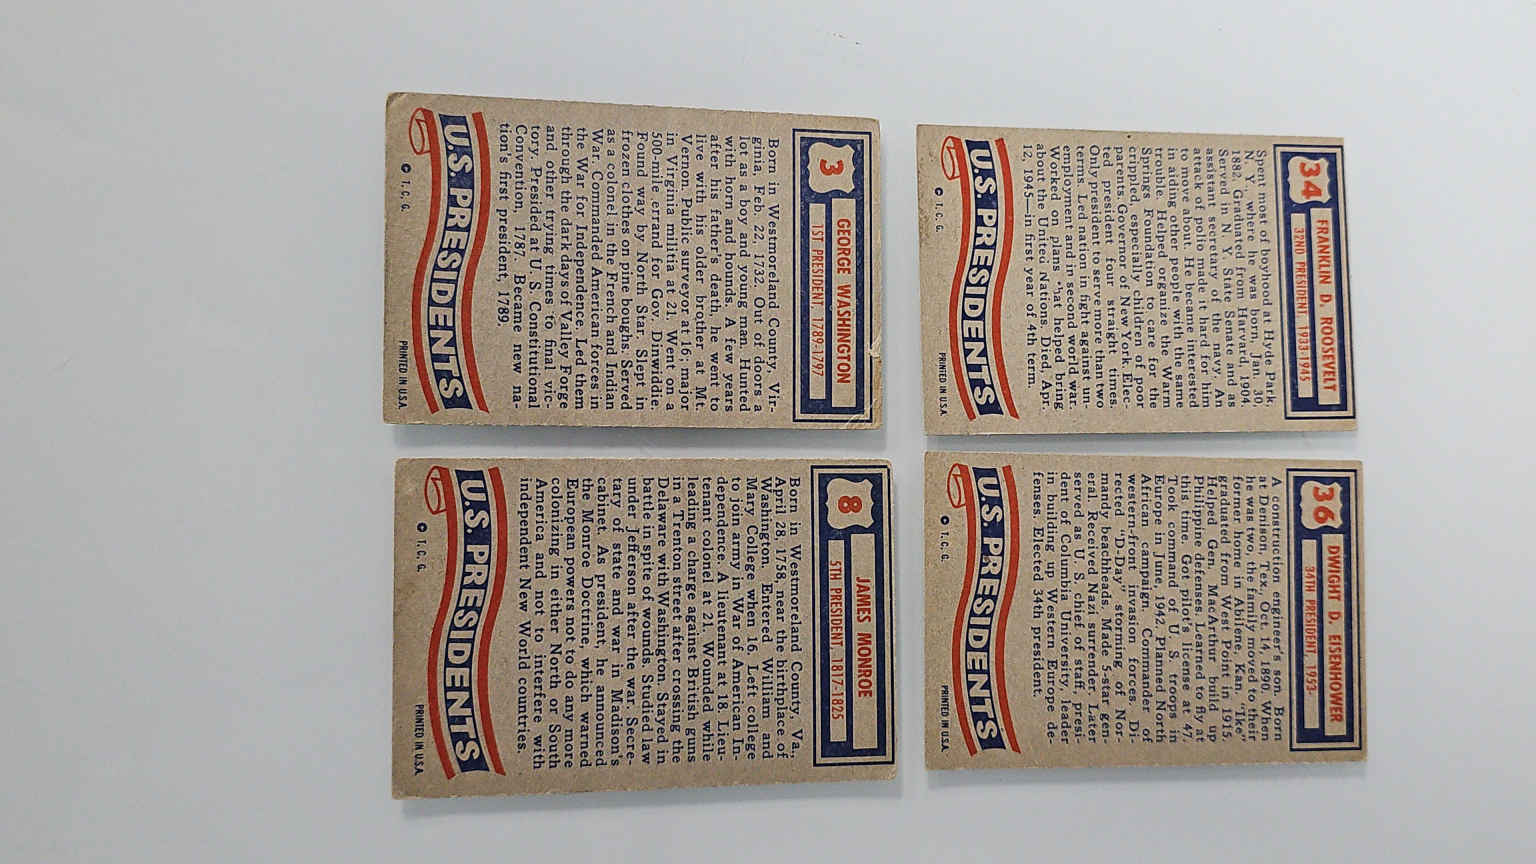 34
FRANKLIN D. ROOSEVELT
32ND PRESIDENT, 1933-1945
Spent most of boyhood at Hyde Park,
N. Y., where he was born, Jan. 30,
1882. Graduated from Harvard, 1904.
Served in N. Y. State Senate and as
assistant secretary of the navy. An
attack of polio made it hard for him
to move about. He became interested
in aiding other people with the same
trouble. Helped organize the Warm
Springs Foundation to care for the
crippled, especially children of poor
parents. Governor of New York. Elec-
ted president four straight times.
Only president to serve more than two
terms. Led nation in fight against un-
employment and in second world war.
Worked on plans that helped bring
about the United Nations. Died, Apr.
12, 1945—in first year of 4th term.
U.S. PRESIDENTS
© T. C. G.
PRINTED IN U.S.A.
36
DWIGHT D. EISENHOWER
34TH PRESIDENT, 1953-
A construction engineer's son. Born
at Denison, Tex., Oct. 14, 1890. When
he was two, the family moved to their
former home in Abilene, Kan. "Ike"
graduated from West Point in 1915.
Helped Gen. MacArthur build up
Philippine defenses. Learned to fly at
this time. Got pilot's license at 47.
Took command of U. S. troops in
Europe in June, 1942. Planned North
African campaign. Commander of
western-front invasion forces. Di-
rected "D-Day" storming of Nor-
mandy beachheads. Made 5-star gen-
eral. Received Nazi surrender. Later
served as U. S. chief of staff, presi-
dent of Columbia University, leader
in building up Western Europe de-
fenses. Elected 34th president.
U.S. PRESIDENTS
© T. C. G.
PRINTED IN U.S.A.
3
GEORGE WASHINGTON
1ST PRESIDENT, 1789-1797
Born in Westmoreland County, Vir-
ginia, Feb. 22, 1732. Out of doors a
lot as a boy and young man. Hunted
with horn and hounds. A few years
after his father's death, he went to
live with his older brother at Mt.
Vernon. Public surveyor at 16; major
in Virginia militia at 21. Went on a
500-mile errand for Gov. Dinwiddie.
Found way by North Star. Slept in
frozen clothes on pine boughs. Served
as a colonel in the French and Indian
War. Commanded American forces in
the War for Independence. Led them
through the dark days of Valley Forge
and other trying times to final vic-
tory. Presided at U. S. Constitutional
Convention, 1787. Became new na-
tion's first president, 1789.
U.S. PRESIDENTS
© T. C. G.
PRINTED IN U.S.A.
8
JAMES MONROE
5TH PRESIDENT, 1817-1825
Born in Westmoreland County, Va.,
April 28, 1758, near the birthplace of
Washington. Entered William and
Mary College when 16. Left college
to join army in War of American In-
dependence. A lieutenant at 18. Lieu-
tenant colonel at 21. Wounded while
leading a charge against British guns
in a Trenton street after crossing the
Delaware with Washington. Stayed in
battle in spite of wounds. Studied law
under Jefferson after the war. Secre-
tary of state and war in Madison's
cabinet. As president, he announced
the Monroe Doctrine, which warned
European powers not to do any more
colonizing in either North or South
America and not to interfere with
independent New World countries.
U.S. PRESIDENTS
© T. C. G.
PRINTED IN U.S.A.